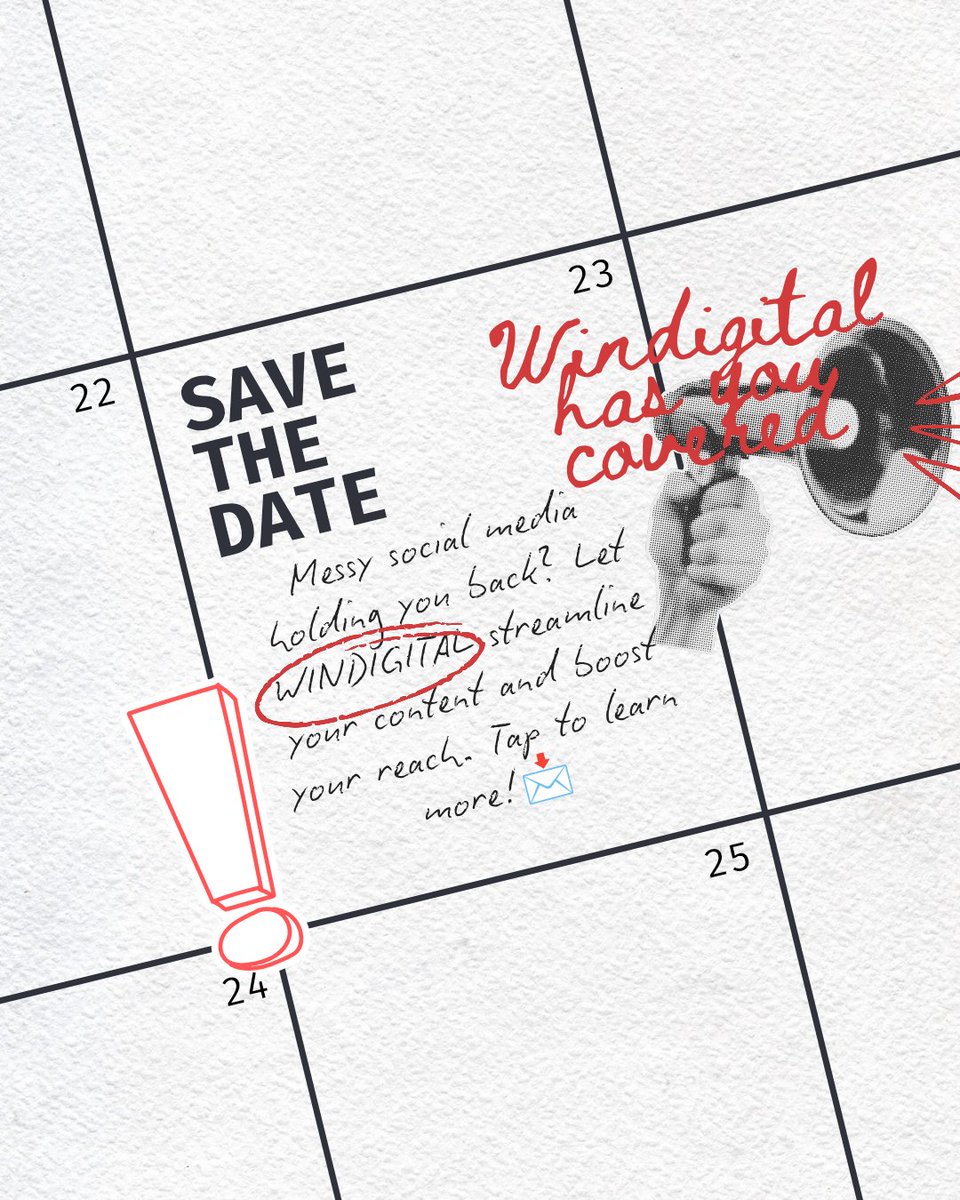 23
22
SAVE
THE
DATE
Windigital
has you
covered
Messy social media
holding you back? Let
WINDIGITAL streamline
your content and boost
your reach. Tap to learn
more! 📩
25
24